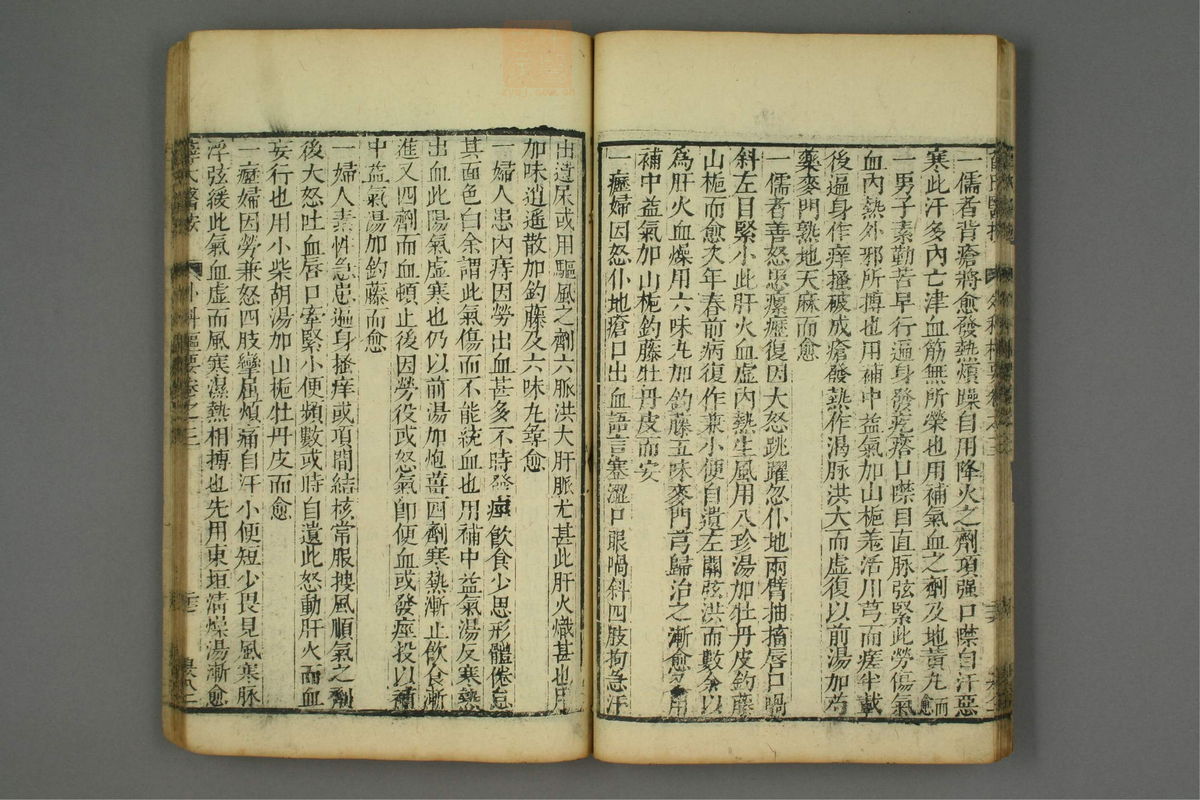 一儒者背瘡將愈發熱煩躁自用降火之劑項强口噤自汗惡
寒此汗多內亡津血筋無所榮也用補氣血之劑及地黃丸而愈
一男子素勤苦早行遍身發疙瘩口噤目直脉弦緊此勞傷氣
血內熱外邪所搏也用補中益氣加山梔羌活川芎而瘥半載
後遍身作痒搔破成瘡發熱作渴脉洪大而虛復以前湯加芎
藥麥門熟地天麻而愈
一儒者善怒患瘰癧復因大怒跳躍忽仆地兩臂抽搐唇口喎
斜左目緊小此肝火血虛內熱生風用八珍湯加牡丹皮釣藤
山梔而愈次年春前病復作兼小便自遺左關弦洪而數余以
為肝火血燥用六味丸加釣藤五味麥門芎歸治之漸愈又用
補中益氣加山梔釣藤牡丹皮而安
一癧婦因怒仆地瘡口出血語言蹇澀口眼喎斜四肢拘急汗
出遺尿或用驅風之劑六脉洪大肝脈尤甚此肝火熾甚也用
加味逍遙散加釣藤及六味丸尋愈
一婦人患內痔因勞出血甚多不時發痙飲食少思形體倦怠
其面色白余謂此氣傷而不能統血也用補中益氣湯反寒熱
出血此陽氣虛寒也仍以前湯加炮薑四劑寒熱漸止飲食漸
進又四劑而血頓止後因勞役或怒氣卽便血或發痙投以補
中益氣湯加釣藤而愈
一婦人素性急患遍身搔痒或項間結核常服搜風順氣之劑
後大怒吐血唇口牽緊小便頻數或時自遺此怒動肝火而血
妄行也用小柴胡湯加山梔牡丹皮而愈
一癧婦因勞兼怒四肢攣屈煩痛自汗小便短少畏見風寒脉
浮弦緩此氣血虛而風寒濕熱相搏也先用東垣清燥湯漸愈
外科樞要卷之三